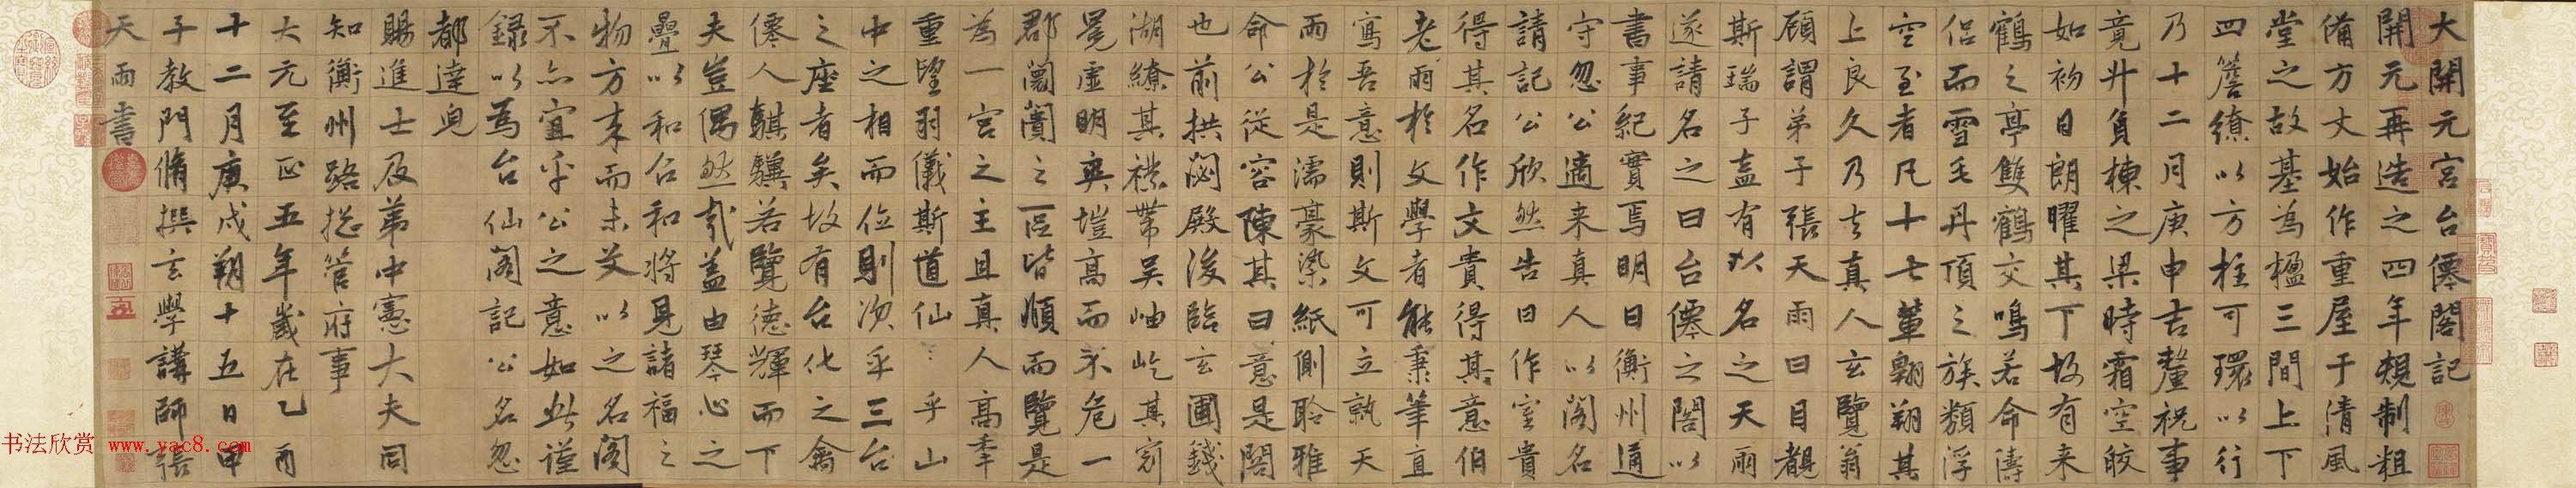 大開元宮台僊閣記
開元再造之四年規制粗
備方丈始作重屋于清風
堂之故基為楹三間上下
四簷繚以方柱可環以行
乃十二月庚申吉釐祝事
竟廾負棟之梁時霜空皎
如初日朗曜其下故有来
鶴之亭雙鶴交鳴若命儔
侣而雪毛丹頂之族類浮
空至者凡十七輩翱翔其
上良久乃去真人玄覽翁
顧謂弟子張天雨曰目覩
斯瑞子盍有以名之天雨
遂請名之曰台僊之閣以
書事紀實焉明日衡州通
守忽公適来真人以閣名
請記公欣然告曰作室貴
得其名作文貴得其意伯
老雨於文學者能秉筆直
寫吾意則斯文可立就天
雨於是濡豪染紙側聆雅
命公從容陳其曰意是閣
也前拱閟殿後臨玄圃錢
湖繚其襟帶吴岫屹其窮
冕虚明奭塏高而不危一
郡闤闠之區皆順而覽是
為一宮之主且真人高率
重望羽儀斯道仙乎山
中之相而位則次乎三台
之座者矣故有台化之禽
僊人騏驥若覽德輝而下
夫豈偶然哉盖由琴心之
疊以和召和將見諸福之
物方来而未艾以之名閣
不亦宜乎公之意如此謹
録以為台仙閣記公名忽
都達皃
賜進士及第中憲大夫同
知衡州路揔管府事
大元至正五年歲在乙酉
十二月庚戌朔十五日甲
子教門脩撰玄學講師張
天雨書
书法欣赏 www.yac8.com